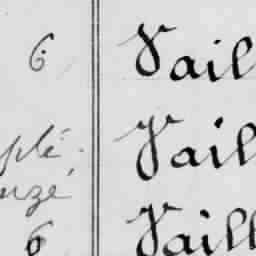 6 Vail
plé Vail
uzé
6 Vaill